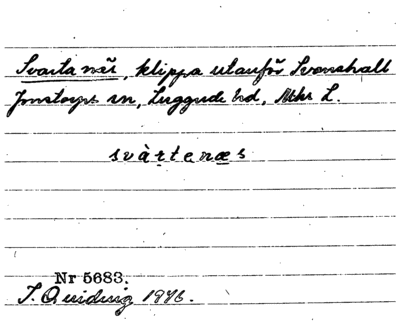 Svarta när, klippa utanför Svanshall
Jonstorps sn, Luggude hd, Mlhs L.
svàṛtenæs
Nr 5683.
J. Quiding 1976.